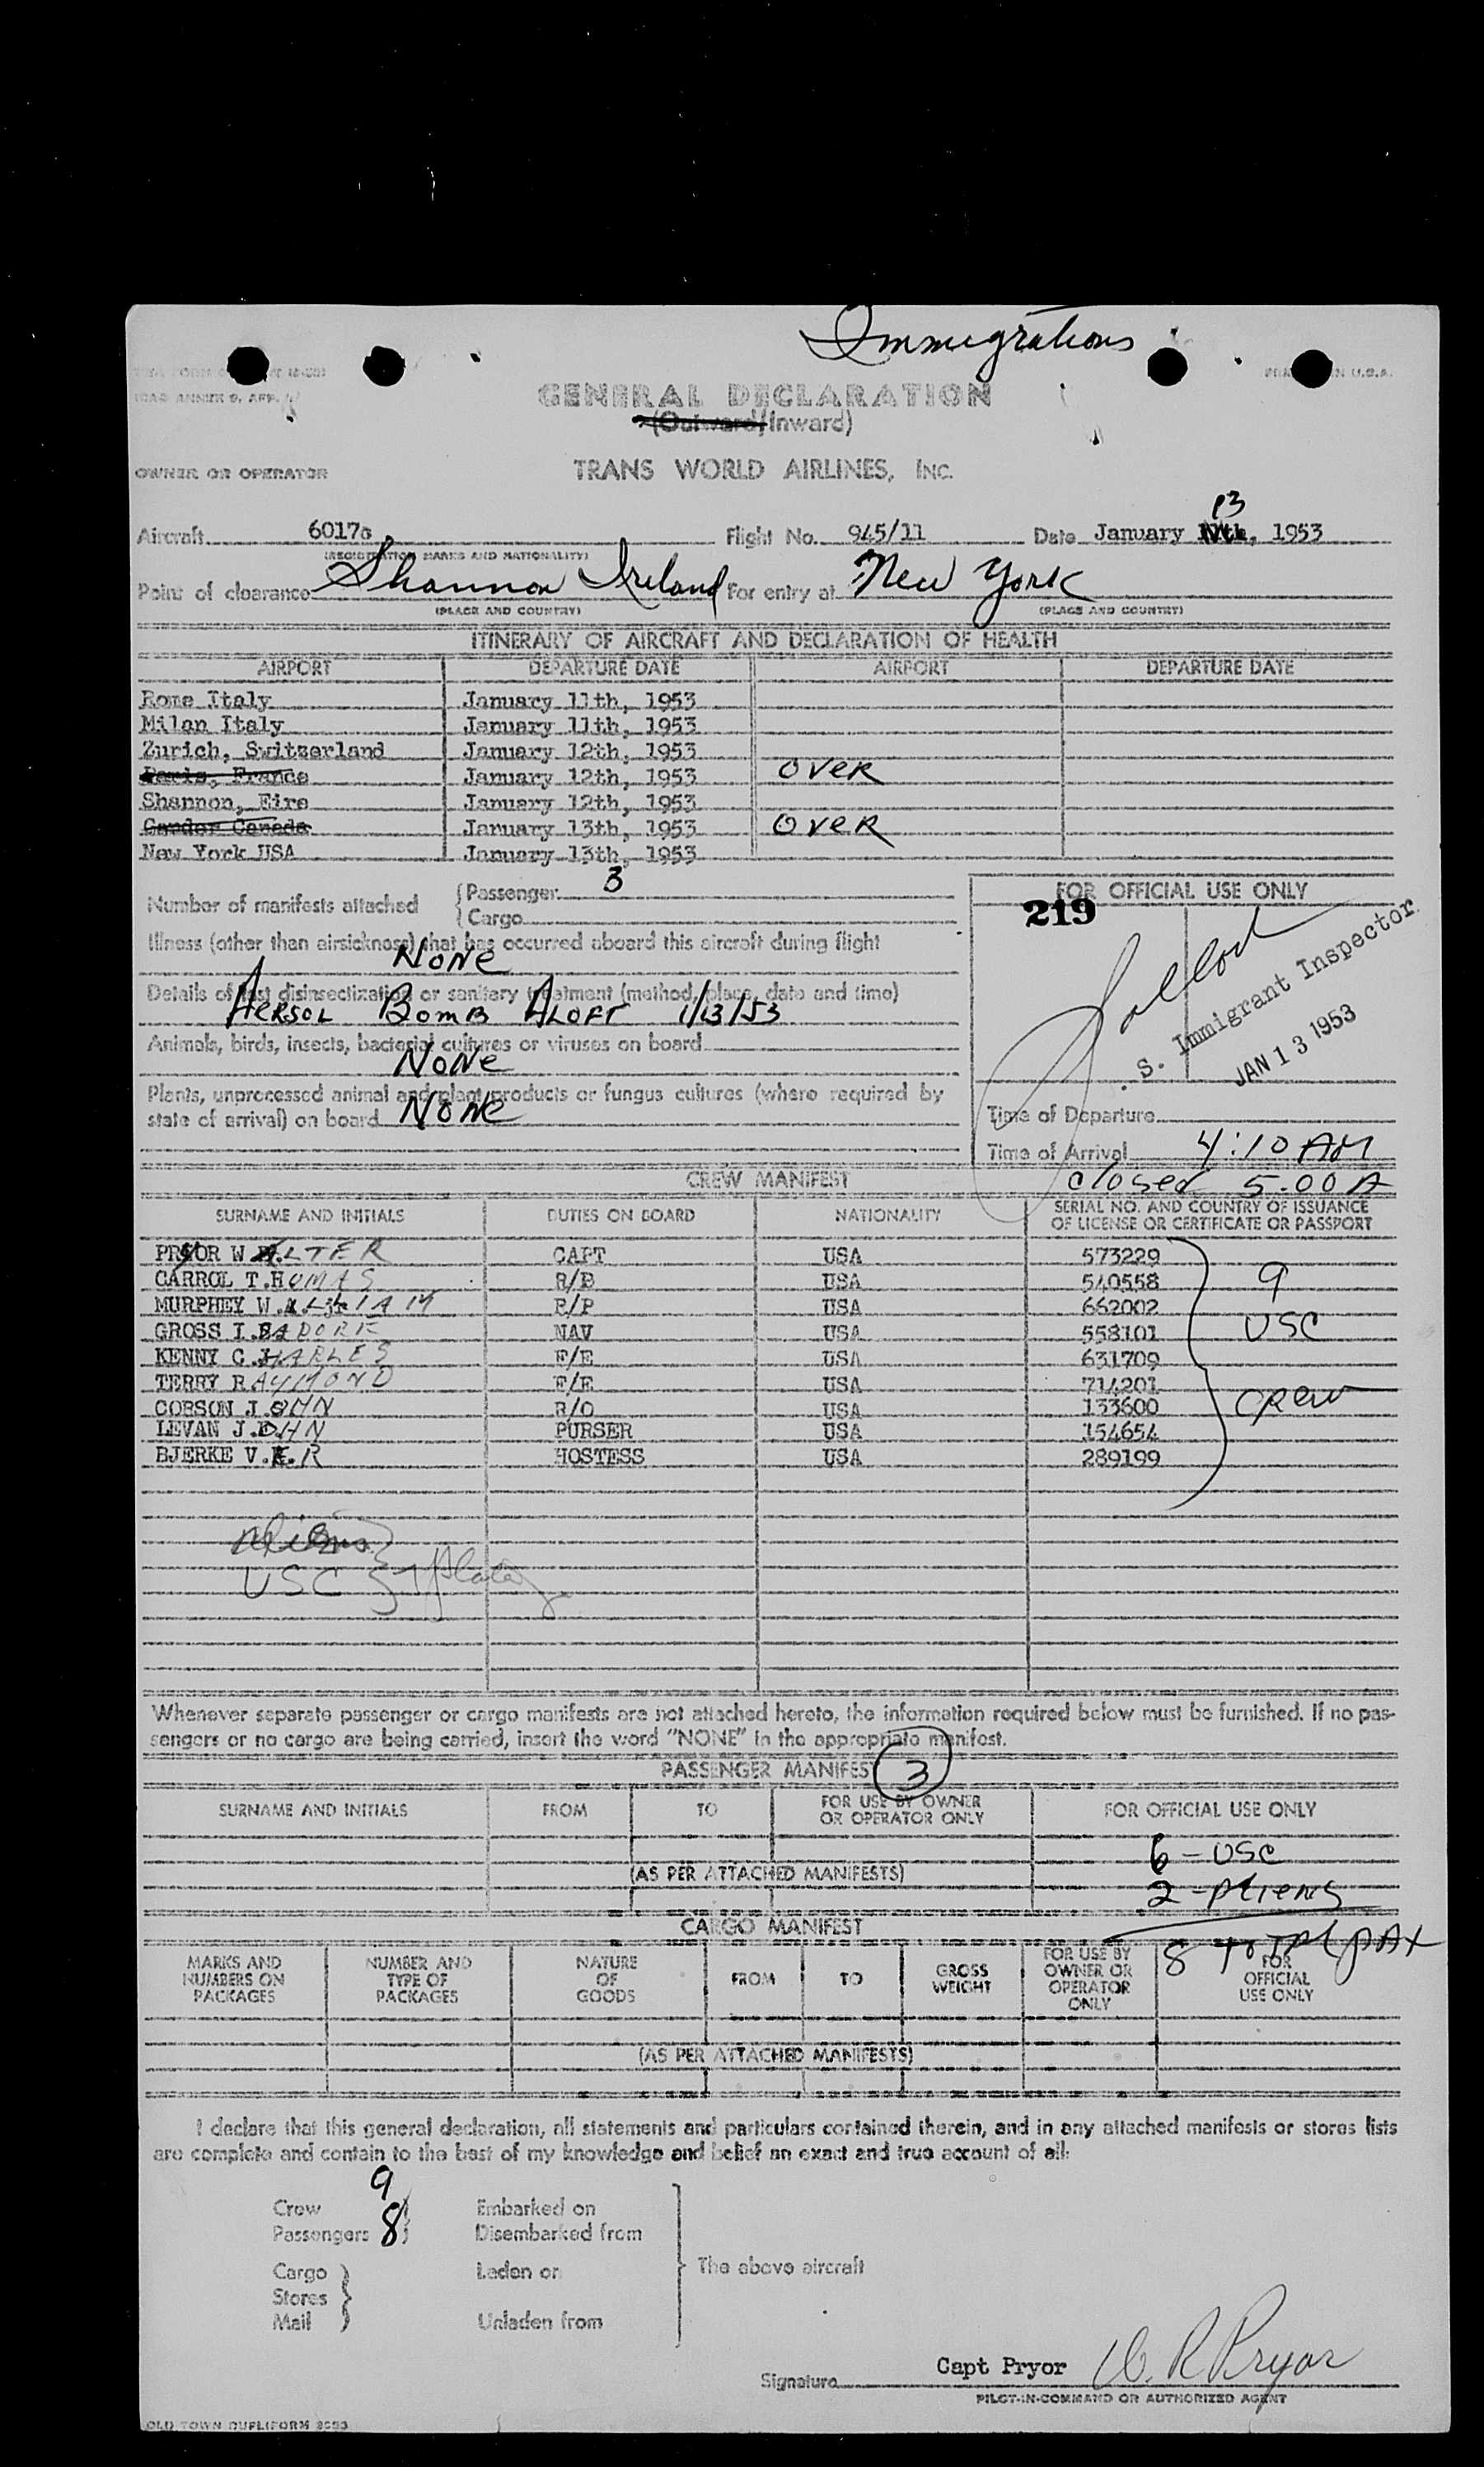 Immigrations
GENERAL DECLARATION
(Outward/Inward)
OWNER OR OPERATOR
TRANS WORLD AIRLINES, INC.
13
Aircraft 6017c Flight No. 945/11 Date January 11th, 1953
(REGISTRATION MARKS AND NATIONALITY)
Point of clearance Shannon Ireland For entry at New York
(PLACE AND COUNTRY) (PLACE AND COUNTRY)
ITINERARY OF AIRCRAFT AND DECLARATION OF HEALTH
AIRPORT DEPARTURE DATE AIRPORT DEPARTURE DATE
Rome Italy January 11th, 1953
Milan Italy January 11th, 1953
Zurich, Switzerland January 12th, 1953
Paris, France January 12th, 1953 OVER
Shannon, Eire January 12th, 1953
Gander Canada January 13th, 1953 OVER
New York USA January 13th, 1953
Number of manifests attached
Passenger 3
Cargo
FOR OFFICIAL USE ONLY
219
Illness (other than airsickness) that has occurred aboard this aircraft during flight
NONE
Details of last disinsectization or sanitary treatment (method, place, date and time)
AERSOL BOMB ALOFT 1/13/53
Animals, birds, insects, bacterial cultures or viruses on board
NONE
Plants, unprocessed animal and plant products or fungus cultures (where required by
state of arrival) on board NONE
. S. Immigrant Inspector
JAN 13 1953
Time of Departure
Time of Arrival 4:10 AM
closed 5.00 A
CREW MANIFEST
SURNAME AND INITIALS DUTIES ON BOARD NATIONALITY SERIAL NO. AND COUNTRY OF ISSUANCE
OF LICENSE OR CERTIFICATE OR PASSPORT
PRYOR WALTER CAPT USA 573229
CARROL T.HOMAS R/P USA 540558
MURPHEY W.ILLIAM R/P USA 662002
GROSS I.SADORE NAV USA 558101
KENNY C.HARLES F/E USA 631709
TERRY RAYMOND F/E USA 714201
CORSON J.OHN R/O USA 133600
LEVAN J.OHN PURSER USA 154654
BJERKE V.E.R HOSTESS USA 289199
9
USC
crew
USC
Whenever separate passenger or cargo manifests are not attached hereto, the information required below must be furnished. If no pas-
sengers or no cargo are being carried, insert the word "NONE" in the appropriate manifest.
PASSENGER MANIFEST 3
SURNAME AND INITIALS FROM TO FOR USE BY OWNER
OR OPERATOR ONLY FOR OFFICIAL USE ONLY
6 - USC
(AS PER ATTACHED MANIFESTS)
2 - Aliens
8 Total PAX
CARGO MANIFEST
MARKS AND NUMBERS ON PACKAGES NUMBER AND TYPE OF PACKAGES NATURE OF GOODS FROM TO GROSS WEIGHT FOR USE BY OWNER OR OPERATOR ONLY FOR OFFICIAL USE ONLY
(AS PER ATTACHED MANIFESTS)
I declare that this general declaration, all statements and particulars contained therein, and in any attached manifests or stores lists
are complete and contain to the best of my knowledge and belief an exact and true account of all:
Crew 9 Embarked on
Passengers 8 Disembarked from
The above aircraft
Cargo Laden on
Stores
Mail Unladen from
Signature Capt Pryor W. R Pryor
PILOT-IN-COMMAND OR AUTHORIZED AGENT
OLD TOWN DUPLIFORM